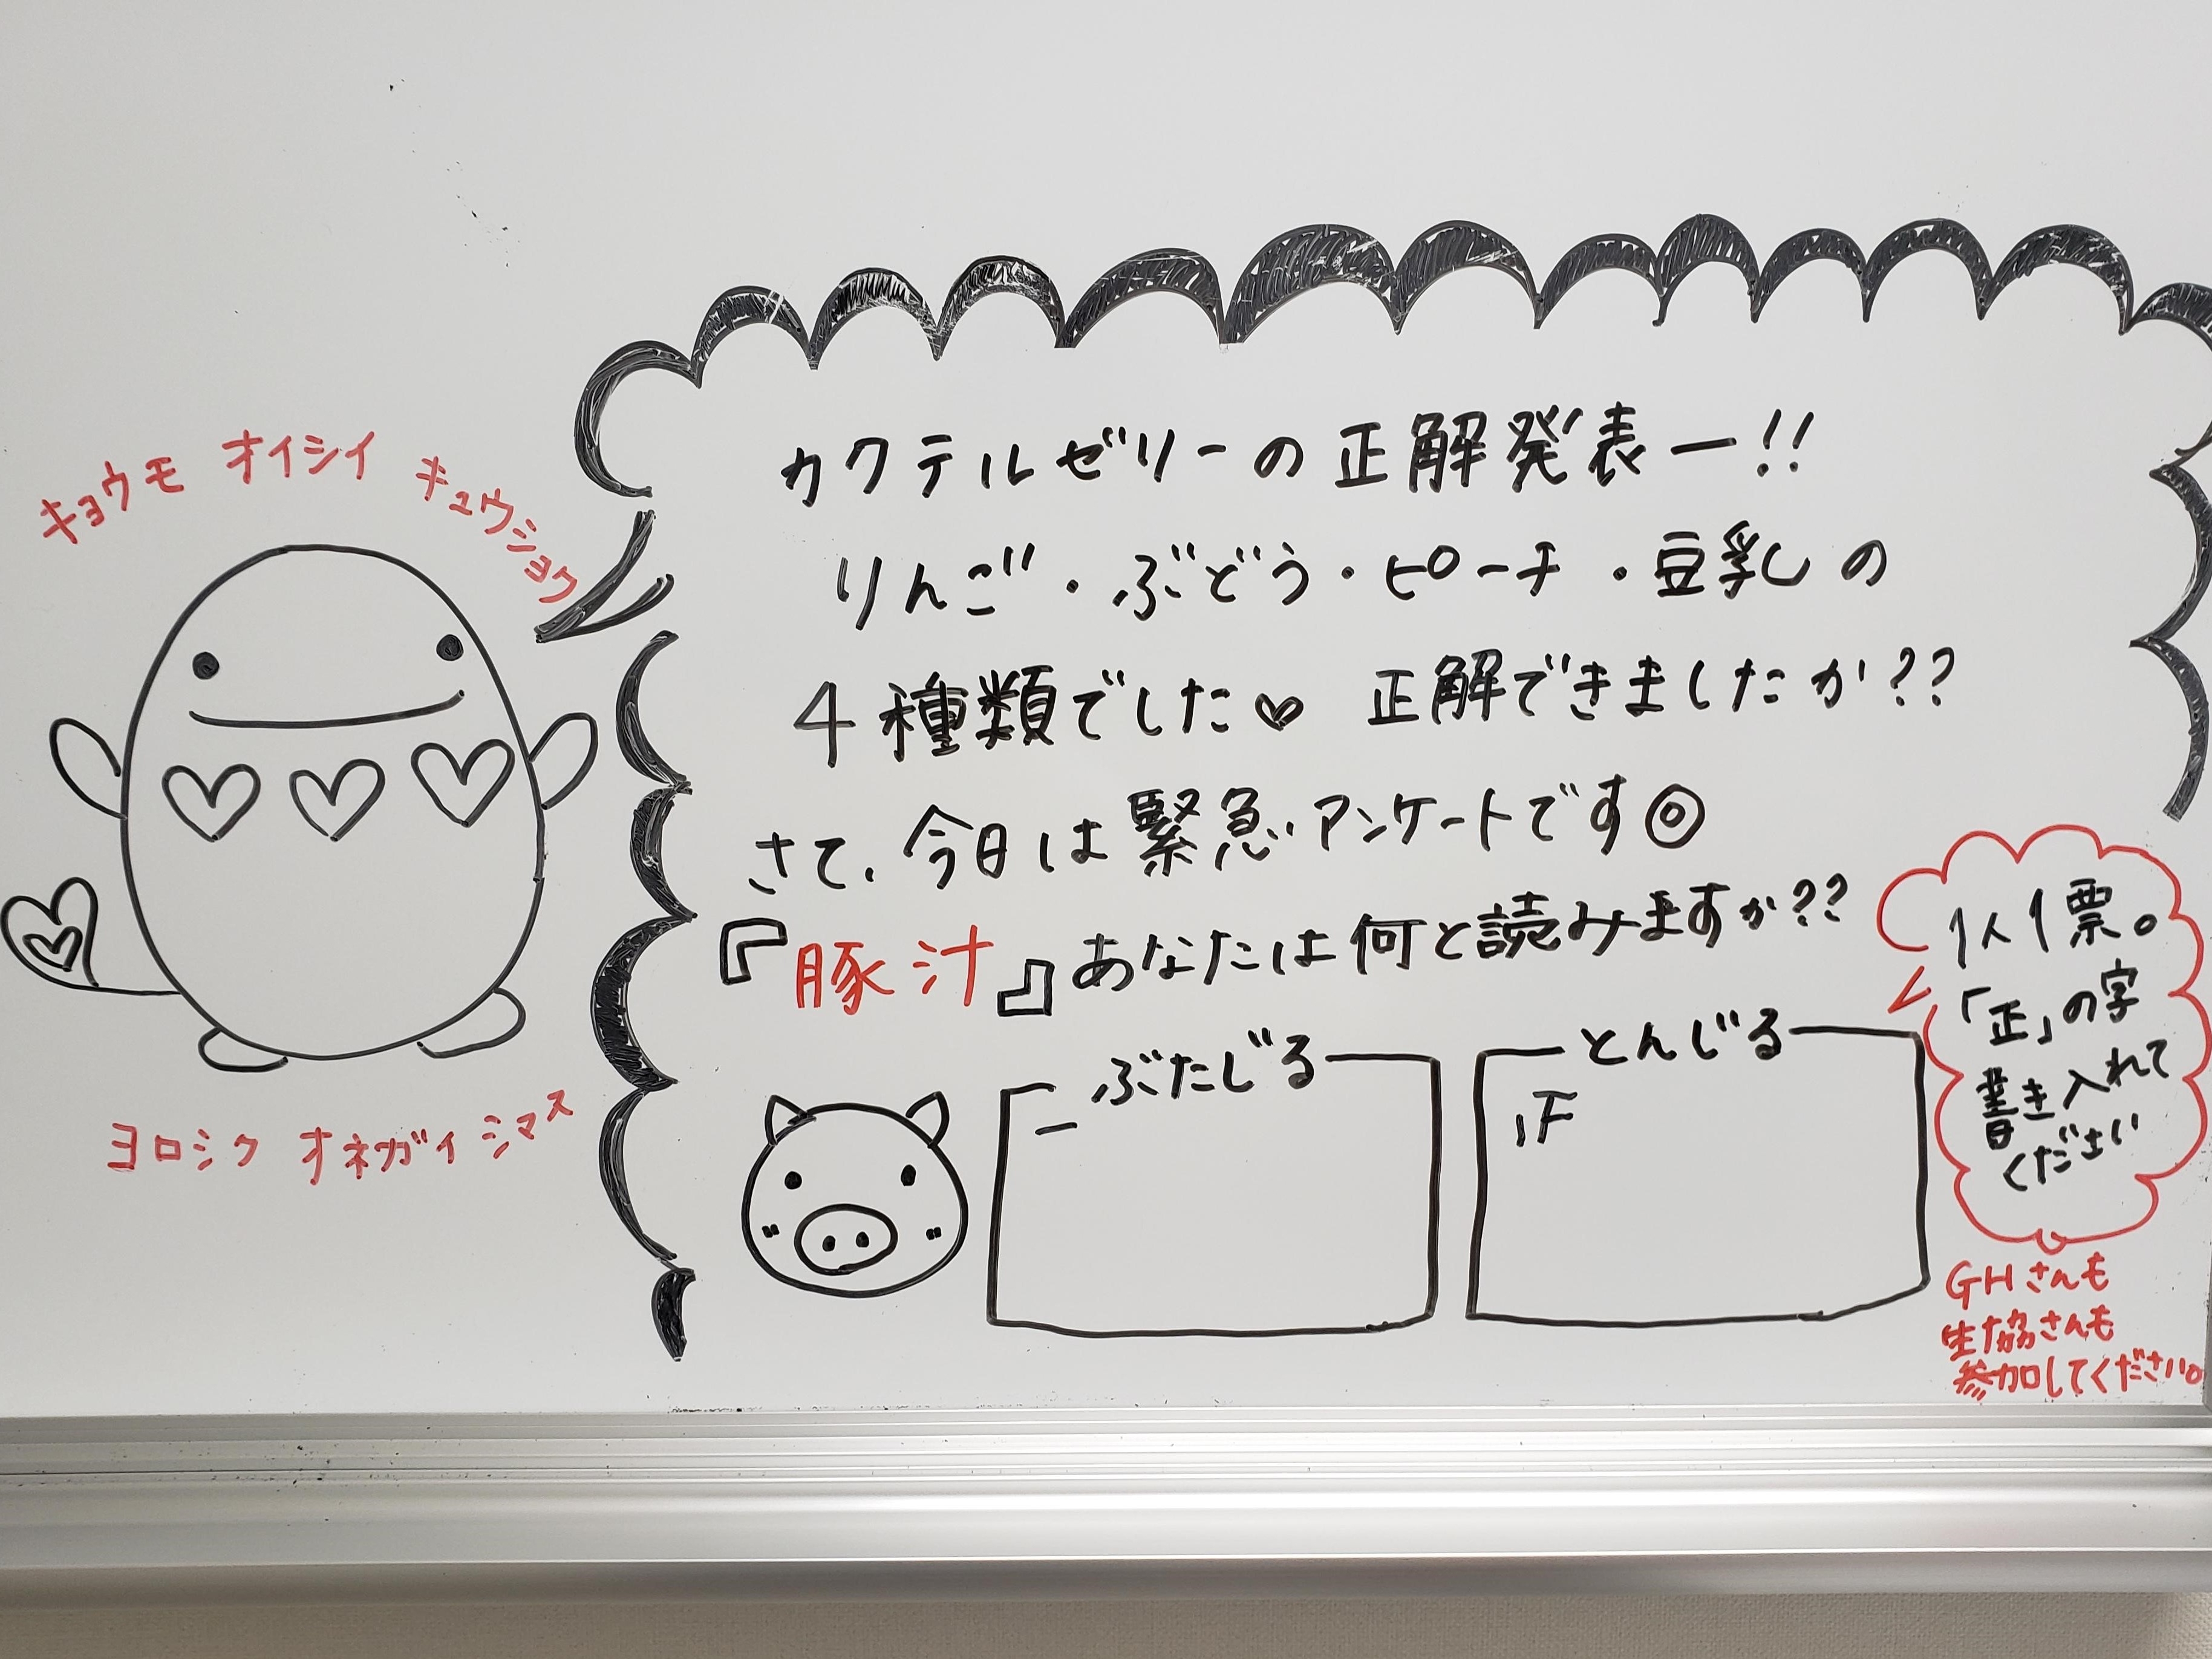 キョウモ オイシイ キュウショク
カクテルゼリーの正解発表ー!!
りんご・ぶどう・ピーチ・豆乳の
4種類でした♡ 正解できましたか??
さて、今日は緊急アンケートです◎
『豚汁』あなたは何と読みますか??
ぶたじる
一
とんじる
正
1人1票。
「正」の字
書き入れて
ください
GHさんも
生協さんも
参加してください。
ヨロシク オネガイシマス